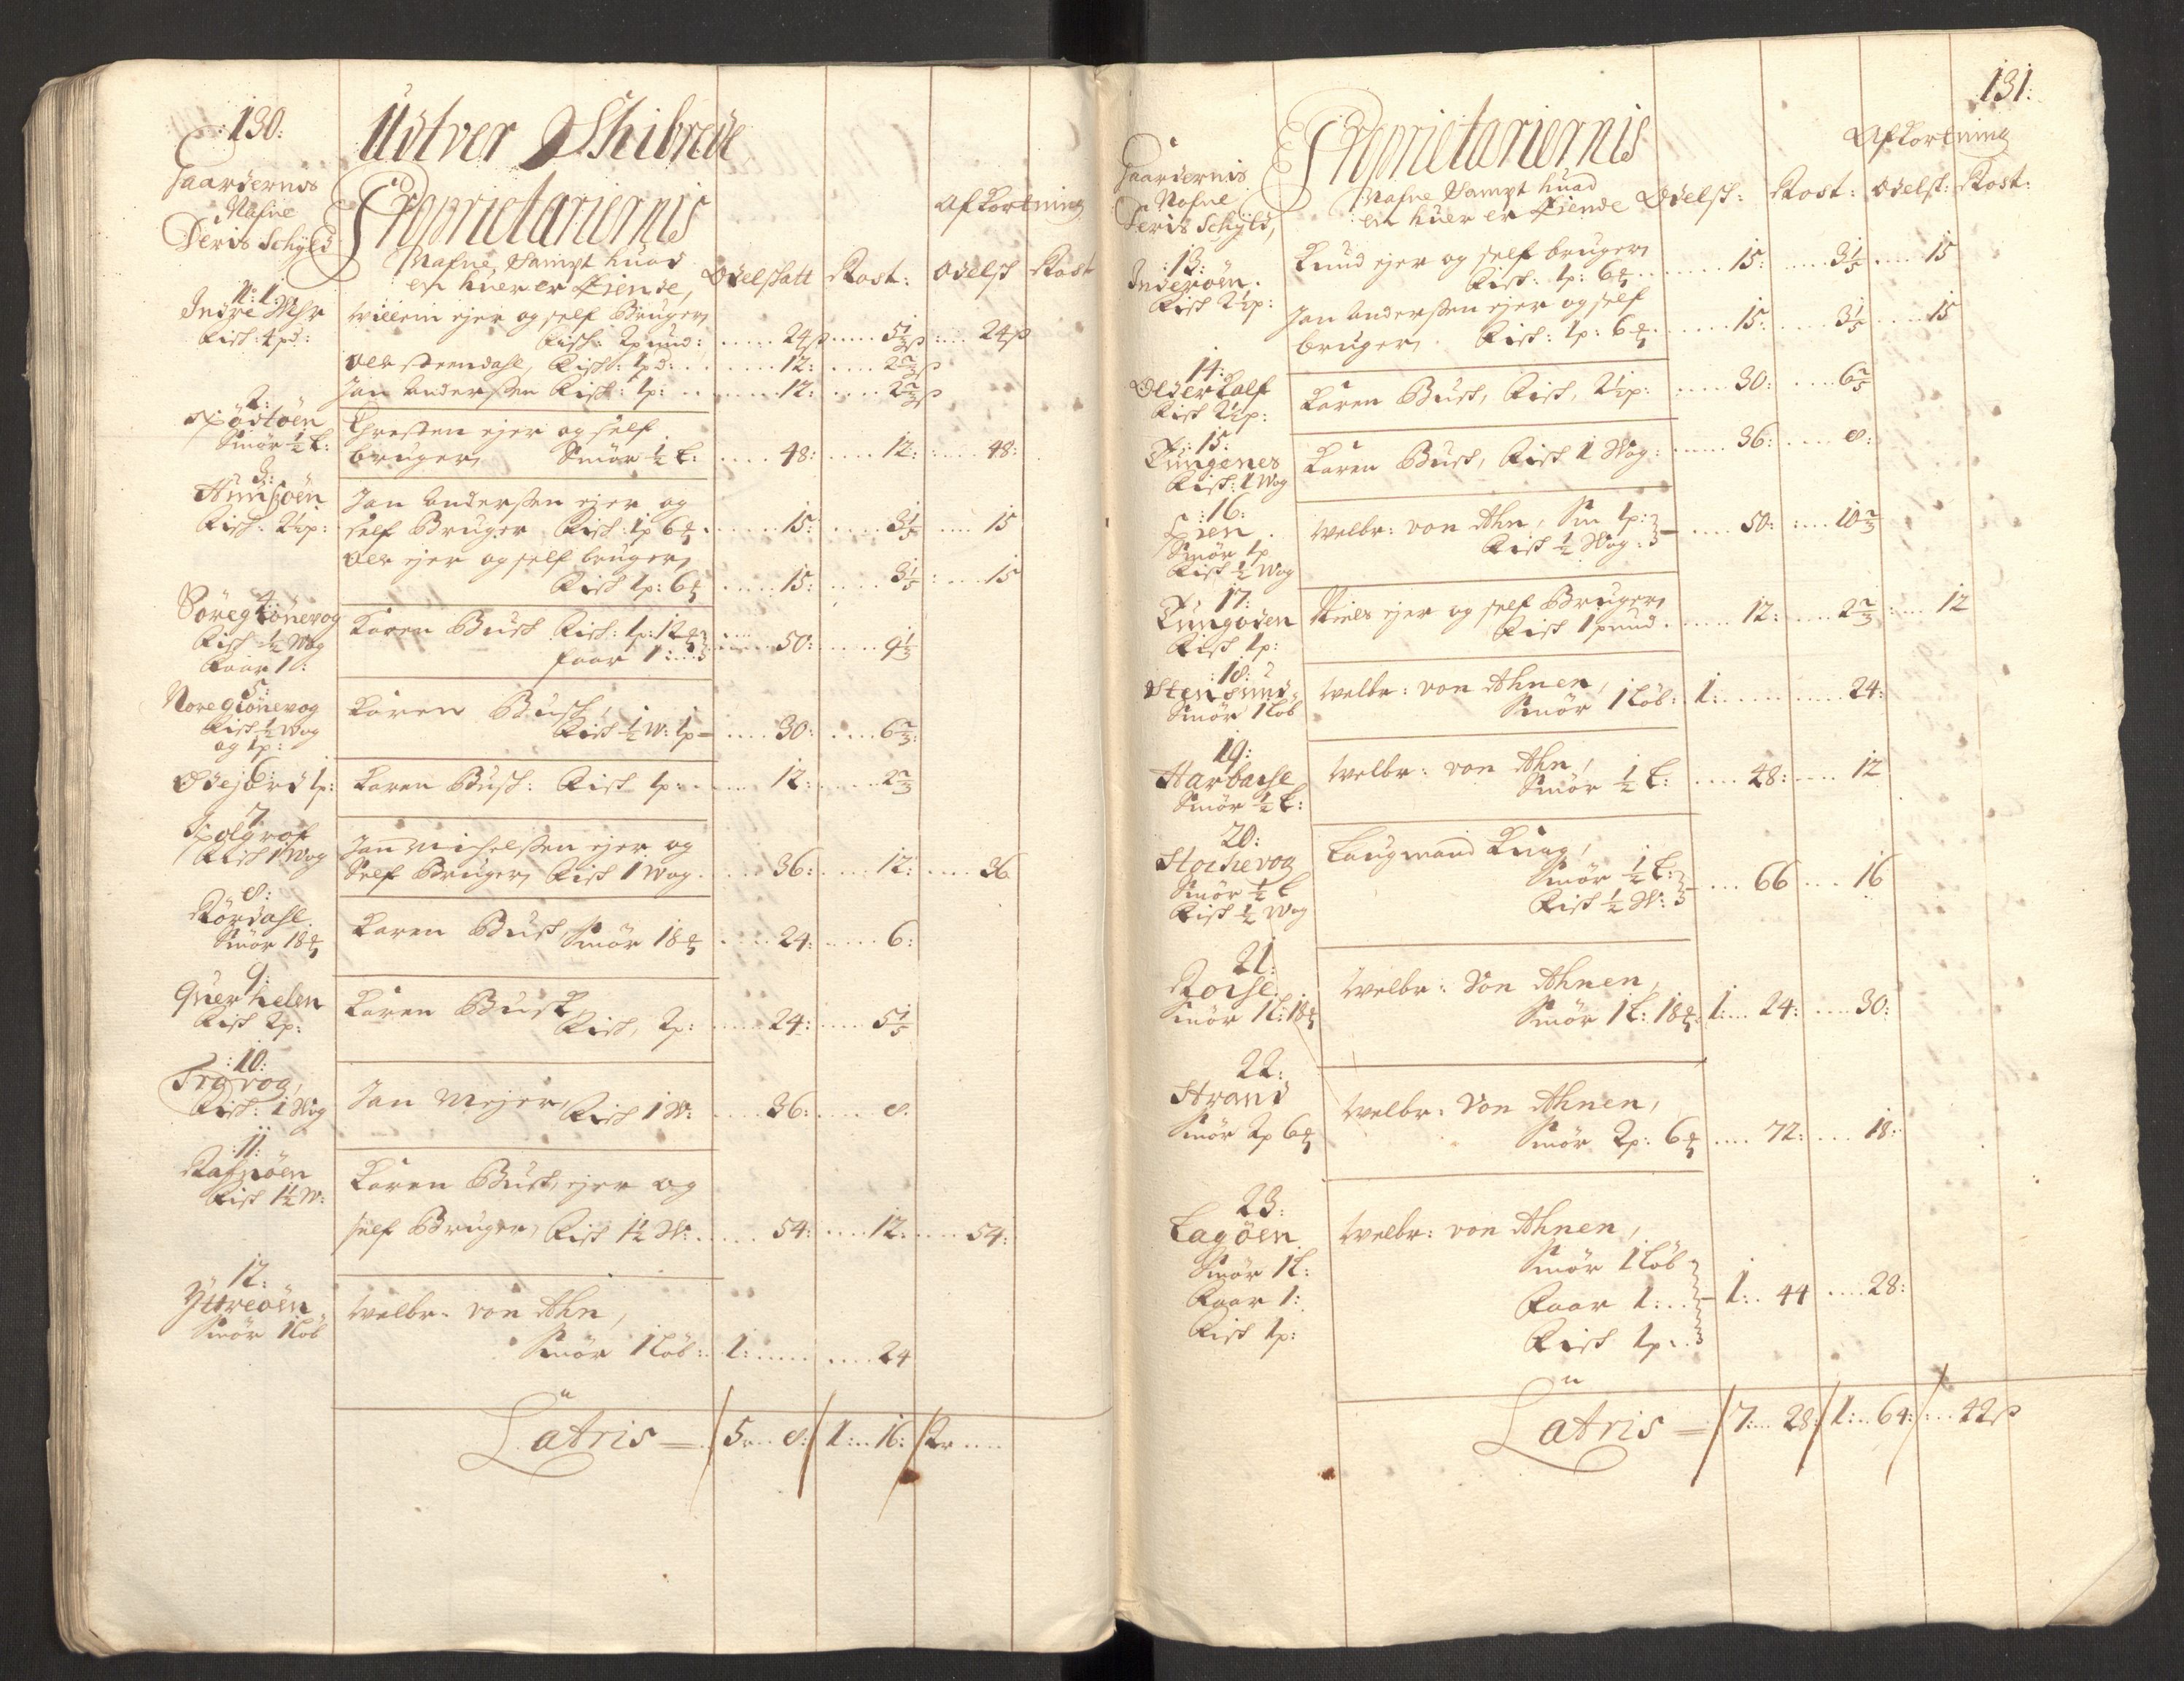 :130:
Udtver Skibrede
Gaardernis
Nafne
Deris Schyld
Proprietariernis
Nafne, Sampt huad
en huer er Eiende,
Odelskatt
Kost:
Afkortning
Odelsk
Kost
N: 1:
Indre
Fisk: 4 pd:
Willem ejer og self Bruger
Fisk: 2 pund: ..... 24 ß ..... 5⅓ ß ..... 24 ß
Ole Steendahl, Fisk: 1 pd: ..... 12: ..... 2⅔ ß
Jan Anderssen Fisk: 1 p: ..... 12: ..... 2⅔ ß
2:
Smör ½ L:
Chresten ejer og self
bruger, Smör ½ L: ..... 48: ..... 12: ..... 48:
3:
Fisk: 2½ p:
Jan Anderssen ejer og
self Bruger, Fisk: 1 p 6 ..... 15: ..... 3⅕ ..... 15
Ole ejer og self bruger,
Fisk 1 p: 6 ..... 15: ..... 3⅕ ..... 15
4:
Söregiönevog
Fisk ½ Wog
Faar 1:
Karen Busk Fisk: 1 p: 12
Faar 1: ..... 50: ..... 9⅓
5:
Noregiönevog
Fisk ½ Wog
og 1 p:
Karen Busk,
Fisk ½ W: 1 p — ..... 30: ..... 6⅔:
6:
Ødejord 1 p:
Karen Busk: Fisk 1 p: ..... 12: ..... 2⅔
7
Fisk 1 Wog
Jan Michelssen ejer og
Self Bruger, Fisk 1 Wog. ..... 36: ..... 12: ..... 36
8:
Rördahl
Smör 18
Karen Busk, Smör 18 ..... 24: ..... 6:
9:
Quer helen
Fisk 2 p:
Karen Busk,
Fisk, 2 p: ..... 24: ..... 5⅕
:10:
Fisk: 1 Wog
Jan Mejer, Fisk 1 W: ..... 36: ..... 8.
:11:
Rafnöen
Fisk 1½ W:
Karen Busk, ejer og
self Bruger, Fisk 1½ W: ..... 54: ..... 12: ..... 54:
12:
Yttreöen
Smör 1 Löb
Welbr: von Ahn,
Smör 1 Löb: 1: ..... 24
Latris — / 5 .. 8: / 1: .. 16: / 2 ....
131:
Gaardernis
Nafne
Deris Schyld,
Proprietariernis
Nafne Sampt huad
en huer er Eiende
Odelsk:
Kost:
Afkortning
Odelsk:
Kost:
:13:
Inderöen.
Fisk 2½ p:
Knud ejer og self bruger,
Fisk: 1 p: 6 ..... 15: ..... 3⅕ ..... 15
Jan Anderssen ejer og self
bruger, Fisk: 1 p: 6 ..... 15: ..... 3⅕ ..... 15
14:
Olderkalf
Fisk 2½ p:
Karen Busk, Fisk, 2½ p: ..... 30: ..... 6⅖
:15:
Tungenes
Fisk: 1 Wog
Karen Busk, Fisk 1 Wog: ..... 36: ..... 8:
:16:
Smör 1 p
Fisk ½ Wog
Welbr: von Ahn, Sm 1 p:
Fisk ½ Wog: — ..... 50: ..... 10⅔
17:
Tungoden
Fisk 1 p:
Niels ejer og self Bruger,
Fisk 1 pund. ..... 12: ..... 2⅔: ..... 12
:18:
Stensund
Smör 1 Löb
Welbr: von Ahnen,
Smör 1 Löb: 1: ..... 24:
19:
Harbache
Smör ½ L:
Welbr: von Ahn,
Smör ½ L: ..... 48: ..... 12
20:
Stochevog
Smör ½ L
Fisk ½ Wog
Laugmand Knag,
Smör ½ L:
Fisk ½ W: — ... 66 ... 16
21:
Smör 1 L: 18
Welbr: Von Ahnen,
Smör 1 L: 18: 1: ... 24: ..... 30:
22:
Strand
Smör 2 p 6
Welbr: Von Ahnen,
Smör 2 p: 6 ..... 72: ..... 18:
23:
Lagöen
Smör 1 L:
Faar 1:
Fisk 1 p:
Welbr: von Ahnen,
Smör 1 Löb
Faar 1: ..
Fisk 1 p: .. — 1: .. 44 ..... 28:
Latris — / 7: ... 28: / 1: .. 64: / ... 42 ß